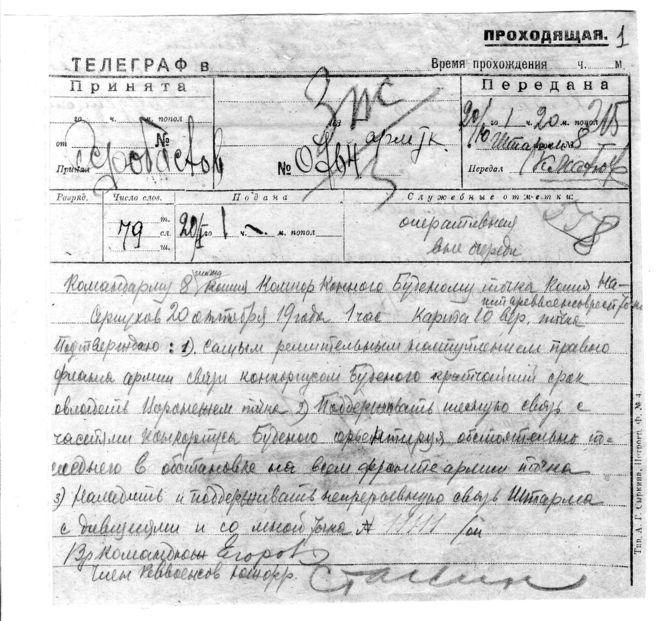 ПРОХОДЯЩАЯ. 1
ТЕЛЕГРАФ в
Время прохождения ч. м.
Принята
Передана
го ч. м. попол
№
от
Принял
№
20/ го 1 ч. 20 м. попол
Штарм 8
Передал
Разряд. Число слов. Подана Служебные отметки:
79 т. сл. ш.
20 го 1 ч. м. попол
оперативная
вне очереди
Командарму 8 копия Комкор Конного Буденому точка Копия На-
Серпухов 20 октября 19 года 1 час Карта 10 вер. точка
Подтверждаю: 1) самым решительным наступлением правого
фланга армии связи конкорпусом Буденого кратчайший срок
овладеть Воронежем точка 2) Поддерживать тесную связь с
частями конкорпуса Буденого ориентируя обстоятельно по-
следнего в обстановке на всем фронте армии точка
3) Наладить и поддерживать непрерывную связь Штарма
с дивизиями и со мной точка
Вр Командюж Егоров
Член Реввоенсов Южфр. Сталин
Тип. А. Г. Сыркина, Петрогр. Ф. № 4.